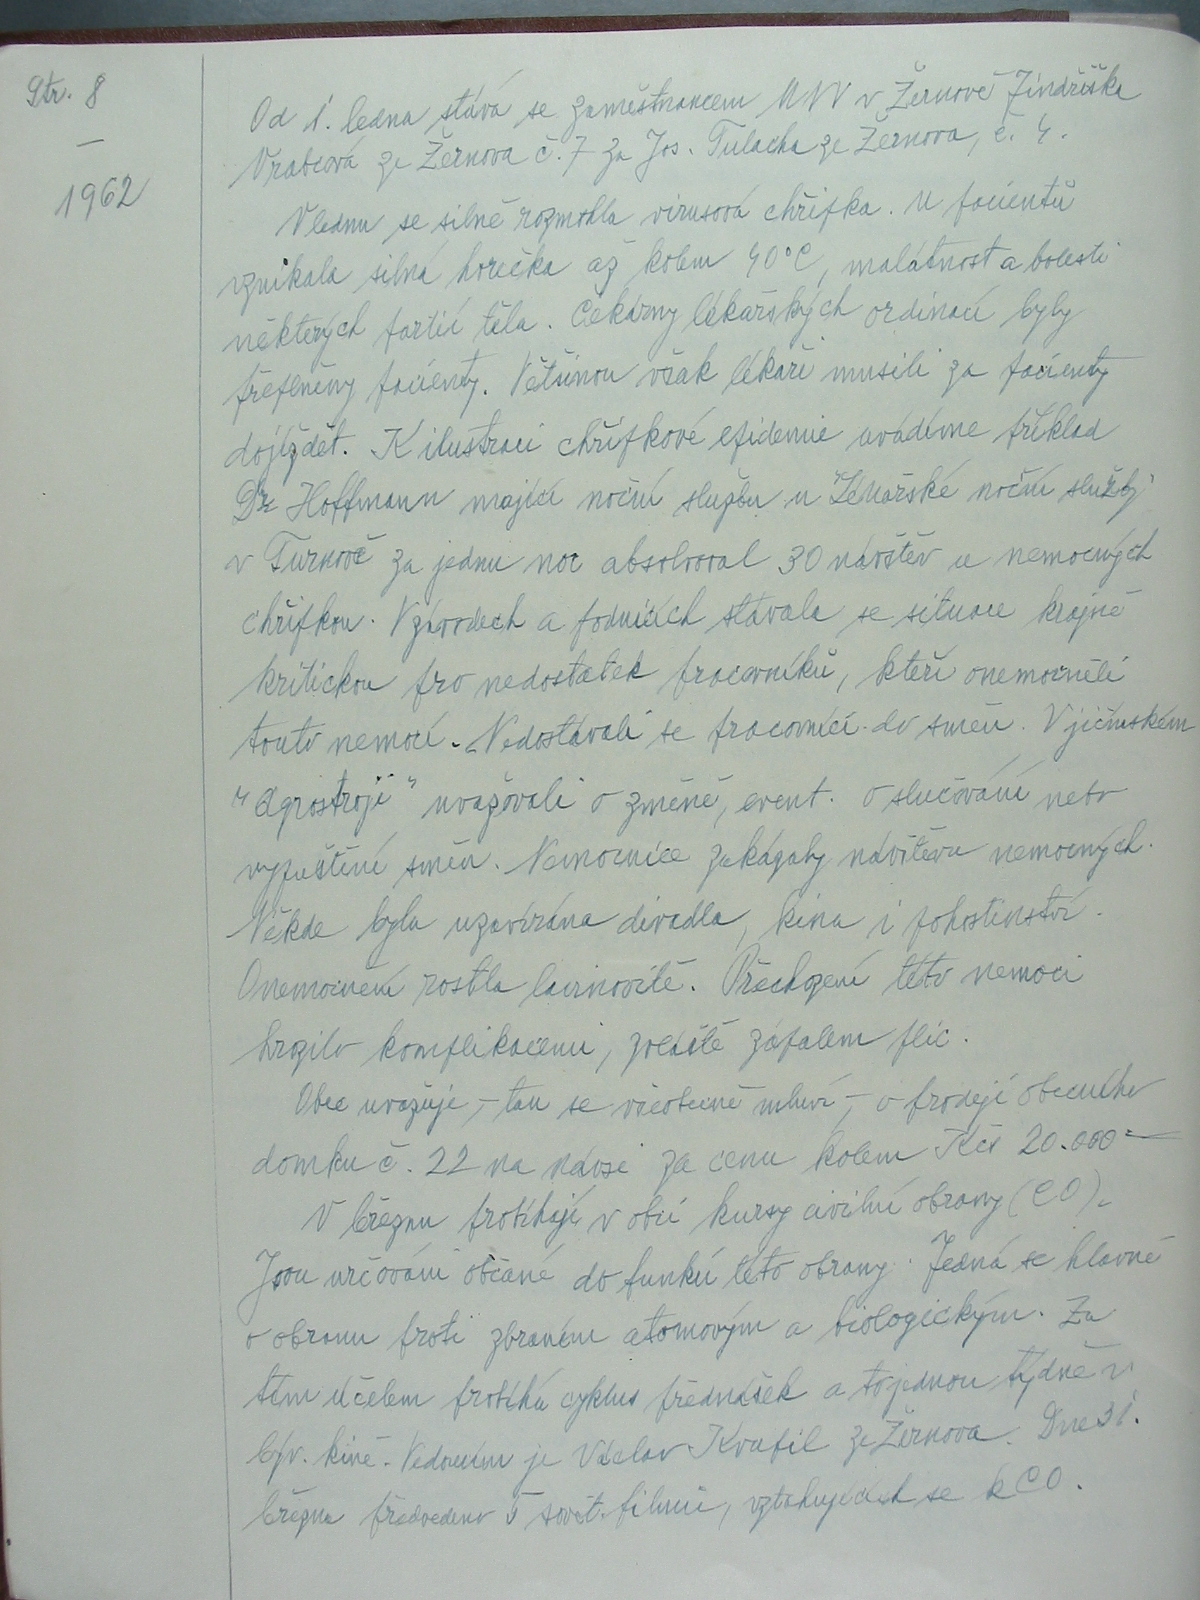 Str. 8
—
1962
Od 1. ledna stává se zaměstnancem MNV v Žernově Jindřiška
Vrabcová ze Žernova č. 7 za Jos. Tulacha ze Žernova, č. 4.
V lednu se silně rozmohla virusová chřipka. U pacientů
vznikala silná horečka až kolem 40°C, malátnost a bolesti
některých partií těla. Čekárny lékařských ordinací byly
přeplněny pacienty. Většinou však lékaři musili za pacienty
dojíždět. K ilustraci chřipkové epidemie uvádíme příklad
Dr Hoffmann mající noční službu u Lékařské noční služby
v Turnově za jednu noc absolvoval 30 návštěv u nemocných
chřipkou. V závodech a podnicích stávala se situace krajně
kritickou pro nedostatek pracovníků, kteří onemocněli
touto nemocí. Nedostávali se pracovníci do směn. V jičínském
"Agrostroji" uvažovali o změně, event. o slučování nebo
vypuštění směn. Nemocnice zakázaly návštěvu nemocných.
Někde byla uzavírána divadla, kina i pohostinství.
Onemocnění rostla lavinovitě. Přechození této nemoci
hrozilo komplikacemi, zvláště zápalem plic.
Obec uvažuje, – tak se všeobecně mluví –, o prodeji obecního
domku č. 22 na návsi za cenu kolem Kčs 20.000 —
V březnu probíhají v obci kursy civilní obrany (CO).
Jsou určováni občané do funkcí této obrany. Jedná se hlavně
o obranu proti zbraním atomovým a biologickým. Za
tím účelem probíhá cyklus přednášek a to jednou týdně v
býv. kině. Vedoucím je Václav Kvapil ze Žernova. Dne 31.
března předvedeno 5 sovět. filmů, vztahujících se k CO.